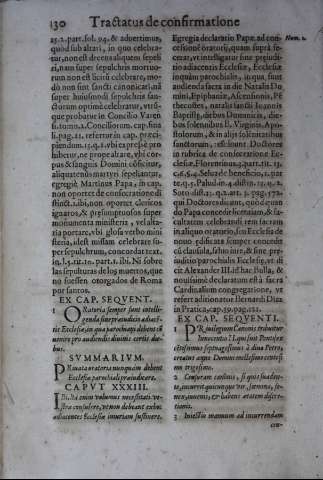 130 Tractatus de confirmatione
25.2. part. fol. 94. & aduertimus,
quòd sub altari, in quo celebra-
tur, non est decens aliquem sepeli
ri, nam super sepulchris mortuo-
rum non est licitũ celebrare, modò
non sint sancti canonicati: nã
super huiusmodi sepulchris san-
ctorum optimè celebratur,
que probatur in Concilio
si. tomo.1. Conciliorum. cap. fina
li pag. refertur in cap.
13.q.2. vbi expressè pro
hibetur, ne prope altare, vbi cor-
pus & sanguis Domini cõficitur,
aliquatenus martyri sepeliantur,
egregiè Martinus Papa, in cap.
non oportet de consecratione di
stinct.1. ibi, non oportet clericos
ignaros, & præsumptuosos super
monumenta ministerra, vel alta-
ria portare, vbi glosa verbo mini
steria, id est missam celebrare su-
per sepulchrum, concordat text.
in 1.5. tit.10. part.1. ibi. Nï sobre
las sepulturas de los muertos, que
no fuessen otorgados de Roma
por santos.
EX CAP. SEQVENT.
1 ORatoria semper sunt intelli-
genda sine præiudicio adiacē
tis Ecclesiæ, in qua parochiani debent cõ
uenire pro audiendis diuinis certis die-
bus.
SVMMARIVM.
PRiuata oratoria nunquam debent
Ecclesiæ parochiali præiudicare.
CAPVT XXXIII.
Ita enim volumus necessitati ve-
stra consulere, vt non debeant exhoc
adiacentes Ecclesiæ iniuriam sustinere.
Egregia declaratio Papæ, ad con-
cessionē oratorij, quam suprà fe-
cerat, vt intelligatur sine præiudi-
tio adiacentis Ecclesiæ, Ecclesiæ
inquàm parochialis, in qua, sunt
audienda sacra in die Natalis Do-
mini, Epiphaniæ, Ascensionis, Pē
thecostes, natalis sancti Ioannis
Baptistę, diebus Dominicis, die-
bus solennibus B. Virginis, Apo-
stolorum, & in alijs solēnitatibus
sanctorum, est sicut Doctores
in rubrica de consecratione Ec-
clesiæ, Florentinus.3. part. tit. 13.
c.6.§.4. Selua de beneficio. 2. par
te. q.5. Palud. in.4. distin. 15. q.2.
Soto dist.13. q.2. art.3. pag. 572.
qui Doctores dicunt, quòd quan
do Papa concedit licentiam, & fa-
cultatem celebrandi rem sacram
in aliquo oratorio, seu Ecclesia de
nouo ædificata semper conceditur
clausula, saluo iure, & sine præ-
iudicio parochialis Ecclesiæ, vt di-
cit Alexander III. in hac Bulla, &
nouissimè declaratum est à sacra
Cardinalium congregatione, vt
refert aditionatur Bernardi Diaz
in Practica, cap.39. pag.121.
Num. 1.
EX CAP. SEQVENTI.
1 PRiuilegium Canonis tribuitur
Innocentio II qui fuit Pontifex
centesimus septuagesimus à diuo Petro,
creatus anno Domini millesimo centesi-
mo trigesimo.
2 Censuram canonis, si quis suaden-
te, incurrunt quicunque vir, femina, se-
nex, iuuenis, & habens ætatem discre-
tionis.
3 Iniectio manuum ad incurrendam
cen-